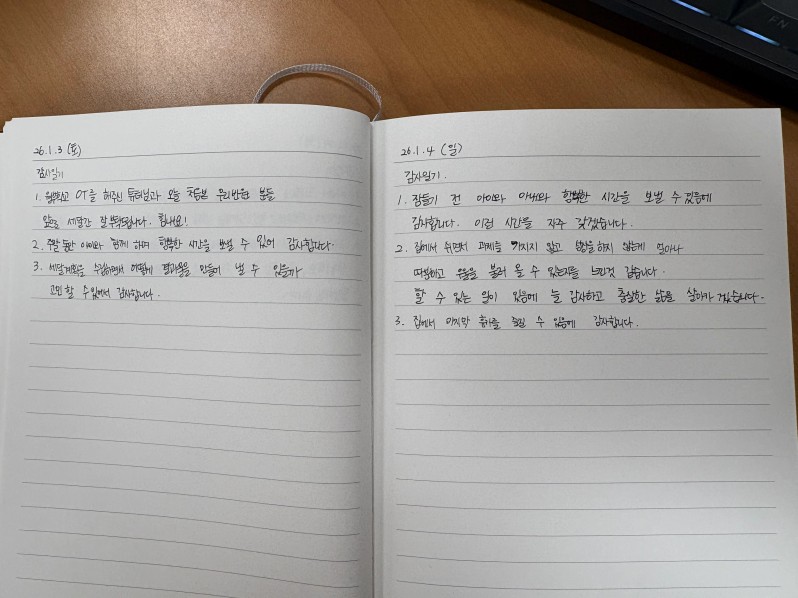 26.1.3 (토)
감사일기
1. OT를 해주신 튜터님과 오늘 처음본 우리반 분들
앞으로 세달간 잘부탁드립니다. 힘내요!
2. 주말 동안 아이와 함께 하며 행복한 시간을 보낼 수 있어 감사합니다.
3. 세달계획을 수립하면서 어떻게 결과물을 만들어 낼 수 있을까
고민할 수 있어서 감사합니다.
26.1.4 (일)
감사일기.
1. 잠들기 전 아이와 아내와 행복한 시간을 보낼 수 있음에
감사합니다. 이런 시간을 자주 갖겠습니다.
2. 집에서 쉬면서 과제를 가지지 않고 을 하지 않는게 얼마나
따분하고 우울을 불러 올 수 있는지를 느낀것 같습니다.
할 수 있는 일이 있음에 늘 감사하고 충실한 삶을 살아가겠습니다.
3. 집에서 마지막 휴가를 즐길 수 있음에 감사합니다.
FN